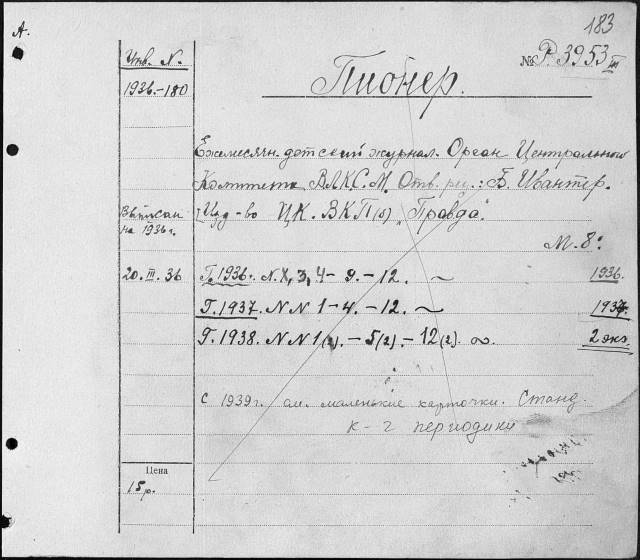 183
А.
№ Р. 3953 III
Инв. N.
1936.-180
Пионер.
Ежемесячн. детский журнал. Орган Центрального
Комитета ВЛКС.М. Отв. ред.: Б. Ивантер.
Выписан на 1936 г.
Изд-во ЦК. ВКП(б) „Правда".
М. 8º
20. III. 36
Г. 1936. N. 3, 4 - 9. - 12. ~ 1936.
Г. 1937. N N 1 - 4. - 12. ~ 1937.
Г. 1938. N N 1(2). - 5(2). - 12(2). ~ 2 экз.
С 1939 г. см. маленькие карточки. Станд.
к-г периодики
Цена
15 р.